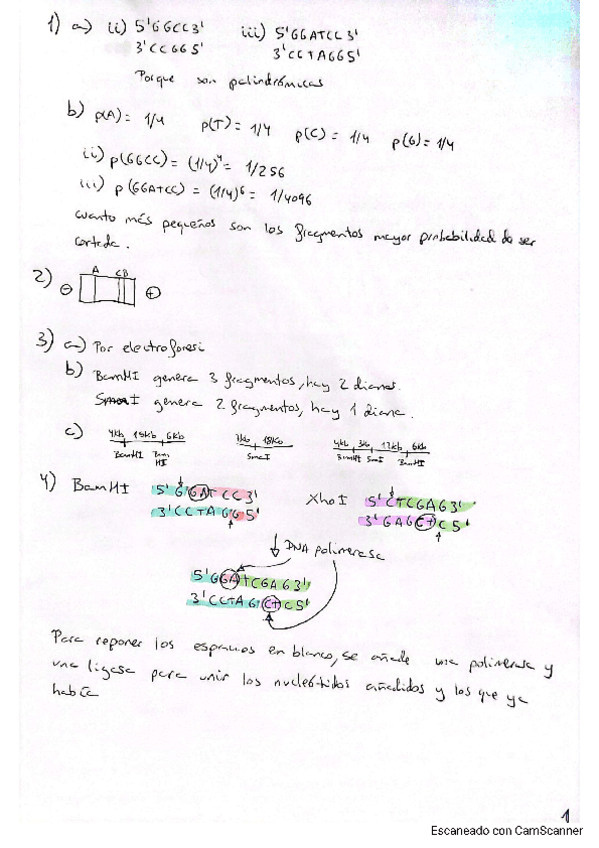 1) a) ii) 5'GGCC3' iii) 5'GGATCC3'
3'CCGG5' 3'CCTAGG5'
Porque son palindrómicas
b) p(A) = 1/4 p(T) = 1/4 p(C) = 1/4 p(G) = 1/4
ii) p(GGCC) = (1/4)⁴ = 1/256
iii) p(GGATCC) = (1/4)⁶ = 1/4096
Cuanto más pequeños son los fragmentos mayor probabilidad de ser
cortada.
2) A CB
⊖ ⊕
3) a) Por electroforesi
b) BamHI genera 3 fragmentos, hay 2 dianas.
SmaI genera 2 fragmentos, hay 1 diana.
c) 4kb 15kb 6kb 7kb 18kb 4kb 3kb 12kb 6kb
BamHI Bam SmaI BamHI SmaI BamHI
HI
4) BamHI 5'GGATCC3' XhoI 5'CTCGAG3'
3'CCTAGG5' 3'GAGCTC5'
↓ DNA polimerasa
5'GGATCGAG3'
3'CCTAGCTC5'
Para reponer los espacios en blanco, se añade una polimerasa y
una ligasa para unir los nucleótidos añadidos y los que ya
había
1
Escaneado con CamScanner